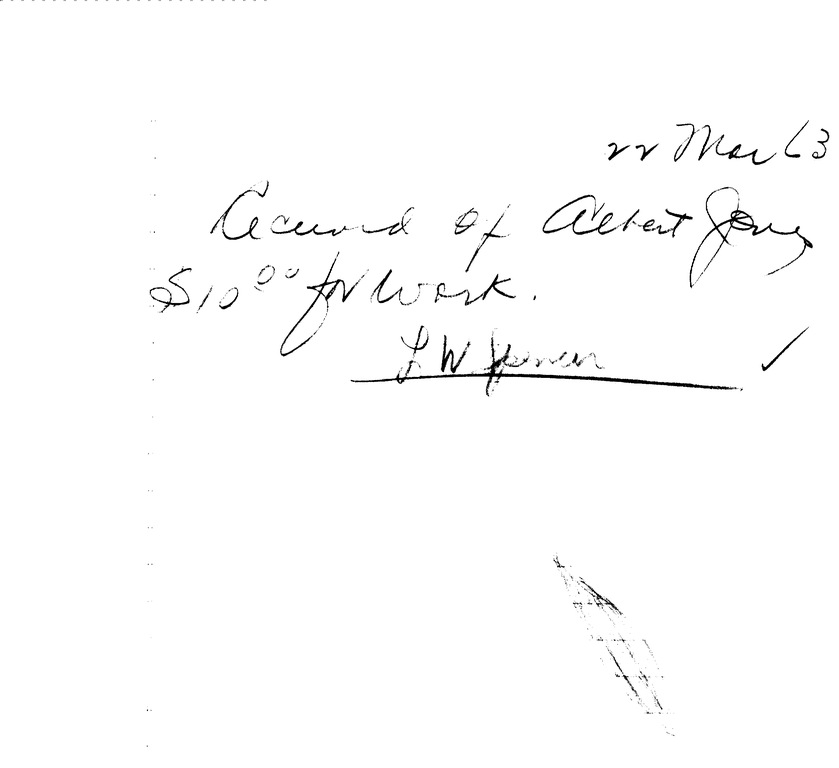 22 Mar 63
Received of Albert Jones
$10 00 for work.
L W Spencer